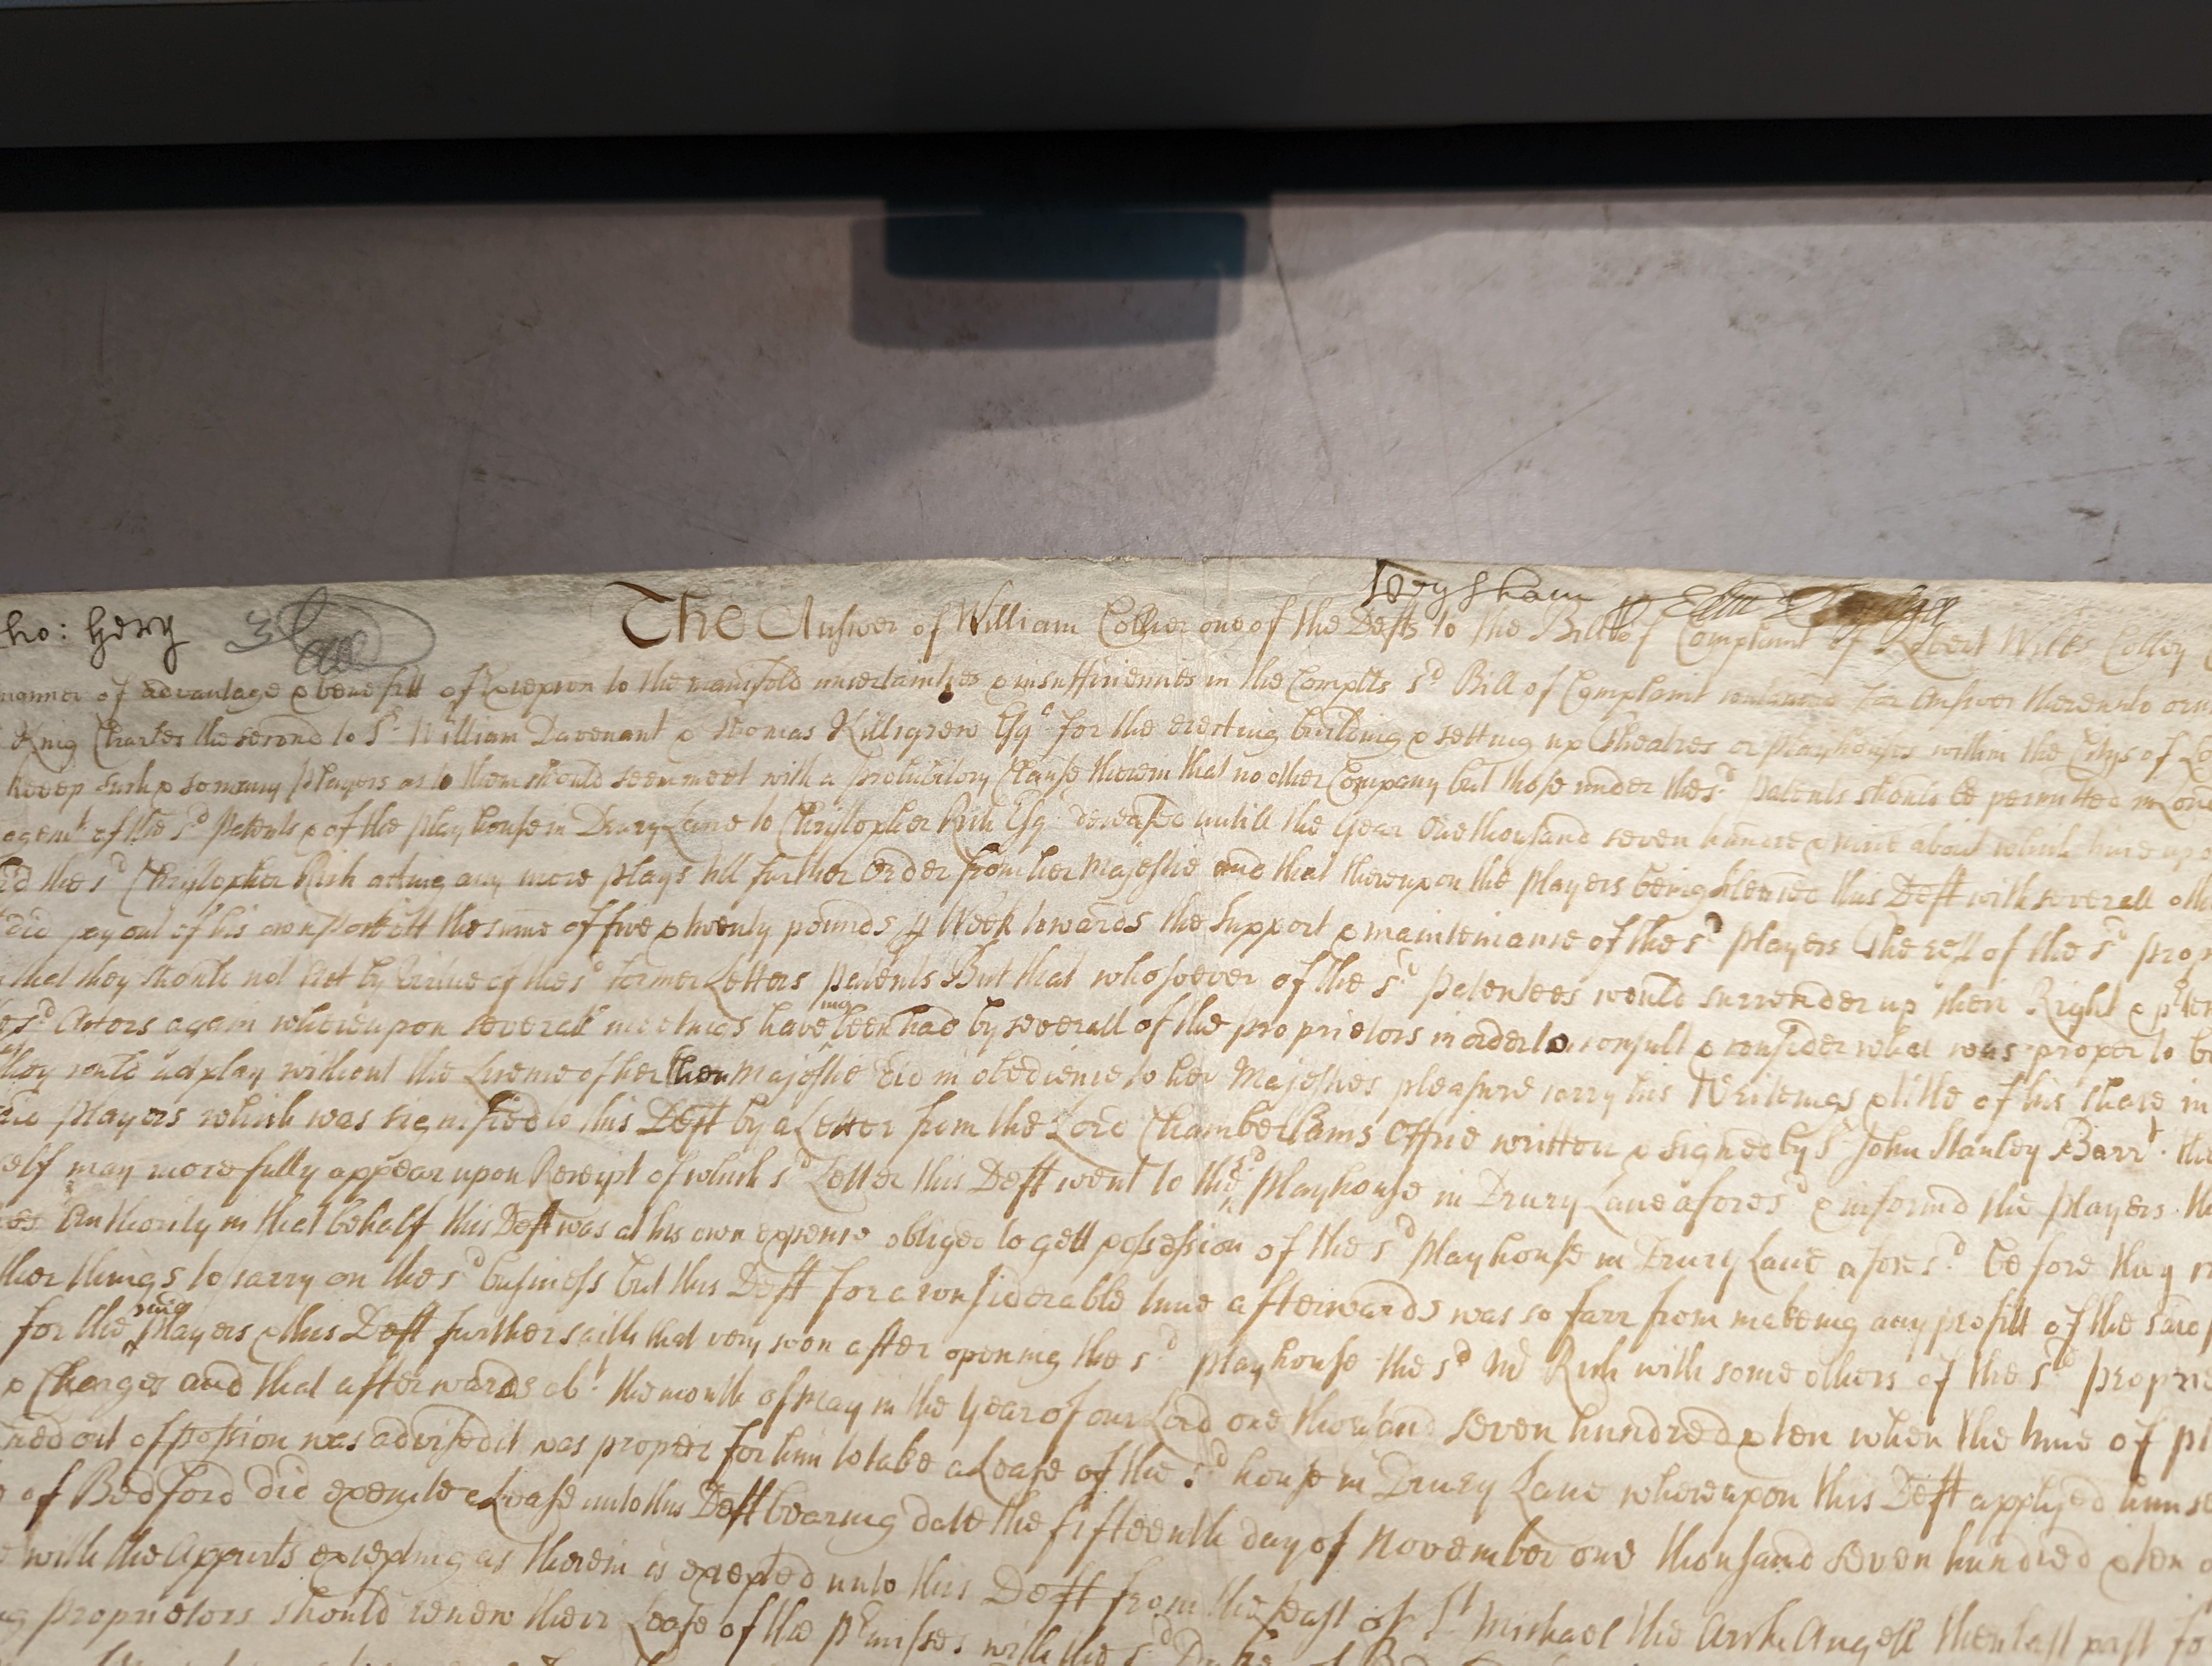 ho: Gery
The Answer of William Collier one of the Defts to the Bill of Complaint of Robert Wilks Colley
manner of advantage & benefitt of Excepcon to the manifold uncertainties & insufficiencies in the Complts sd Bill of Complaint contained for Answer thereunto
King Charles the second to Sr William Davenant & Thomas Killigrew Esqr for the erecting building & setting up Theatres or playhouses within the Citys of
keep such & so many players as to them should seem meet with a prohibitory Clause therein that no other Company but those under the sd patents should be permitted in Lon
agent of the sd patents & of the playhouse in Drury Lane to Christopher Rich Esqr deceased untill the year One thousand seven hundred & nine about which time
the sd Christopher Rich acting any more plays till further Order from her Majestie and that thereupon the players being this Deft with severall oth
did pay out of his own pockett the summe of five & twenty pounds p Week towards the support & maintenance of the sd players The rest of the sd prop
that they should not Act by virtue of the sd former Letters patents But that whosoever of the sd patentees would surrender up their Right &
sd Actors again whereupon severall meetings haveing been had by severall of the proprietors in order to consult & consider what was proper to
they could not play without the Licence of her then Majestie did in obedience to her Majesties pleasure carry his Writeings & title of his share in
players which was signified to this Deft by a Letter from the Lord Chamberlains Office written & signed by Sr John Stanley Barrt the
self may more fully appear upon Receipt of which sd Letter this Deft went to the sd playhouse in Drury Lane aforesd & informd the players th
Authority in that behalf this Deft was at his own expence obliged to gett possession of the sd playhouse in Drury Lane aforesd before they
ther things to carry on the sd business but this Deft for a considerable time afterwards was so farr from makeing any profitt of the said
for the said players & this Deft further saith that very soon after opening the sd playhouse the sd Mr Rich with some others of the sd proprie
& Charges and that afterwards abt the month of May in the year of our Lord one thousand seven hundred & ten when the time of
ned out of possion was advised it was proper for him to take a Lease of the sd house in Drury Lane whereupon this Deft applyed himse
of Bedford did execute a Lease unto this Deft bearing date the fifteenth day of November one thousand seven hundred & ten
with the Appurts excepting as therein is excepted unto this Deft from the feast of St Michael the Arch Angell then last past fo
proprietors should renew their Lease of the prmisses with the sd Duke of